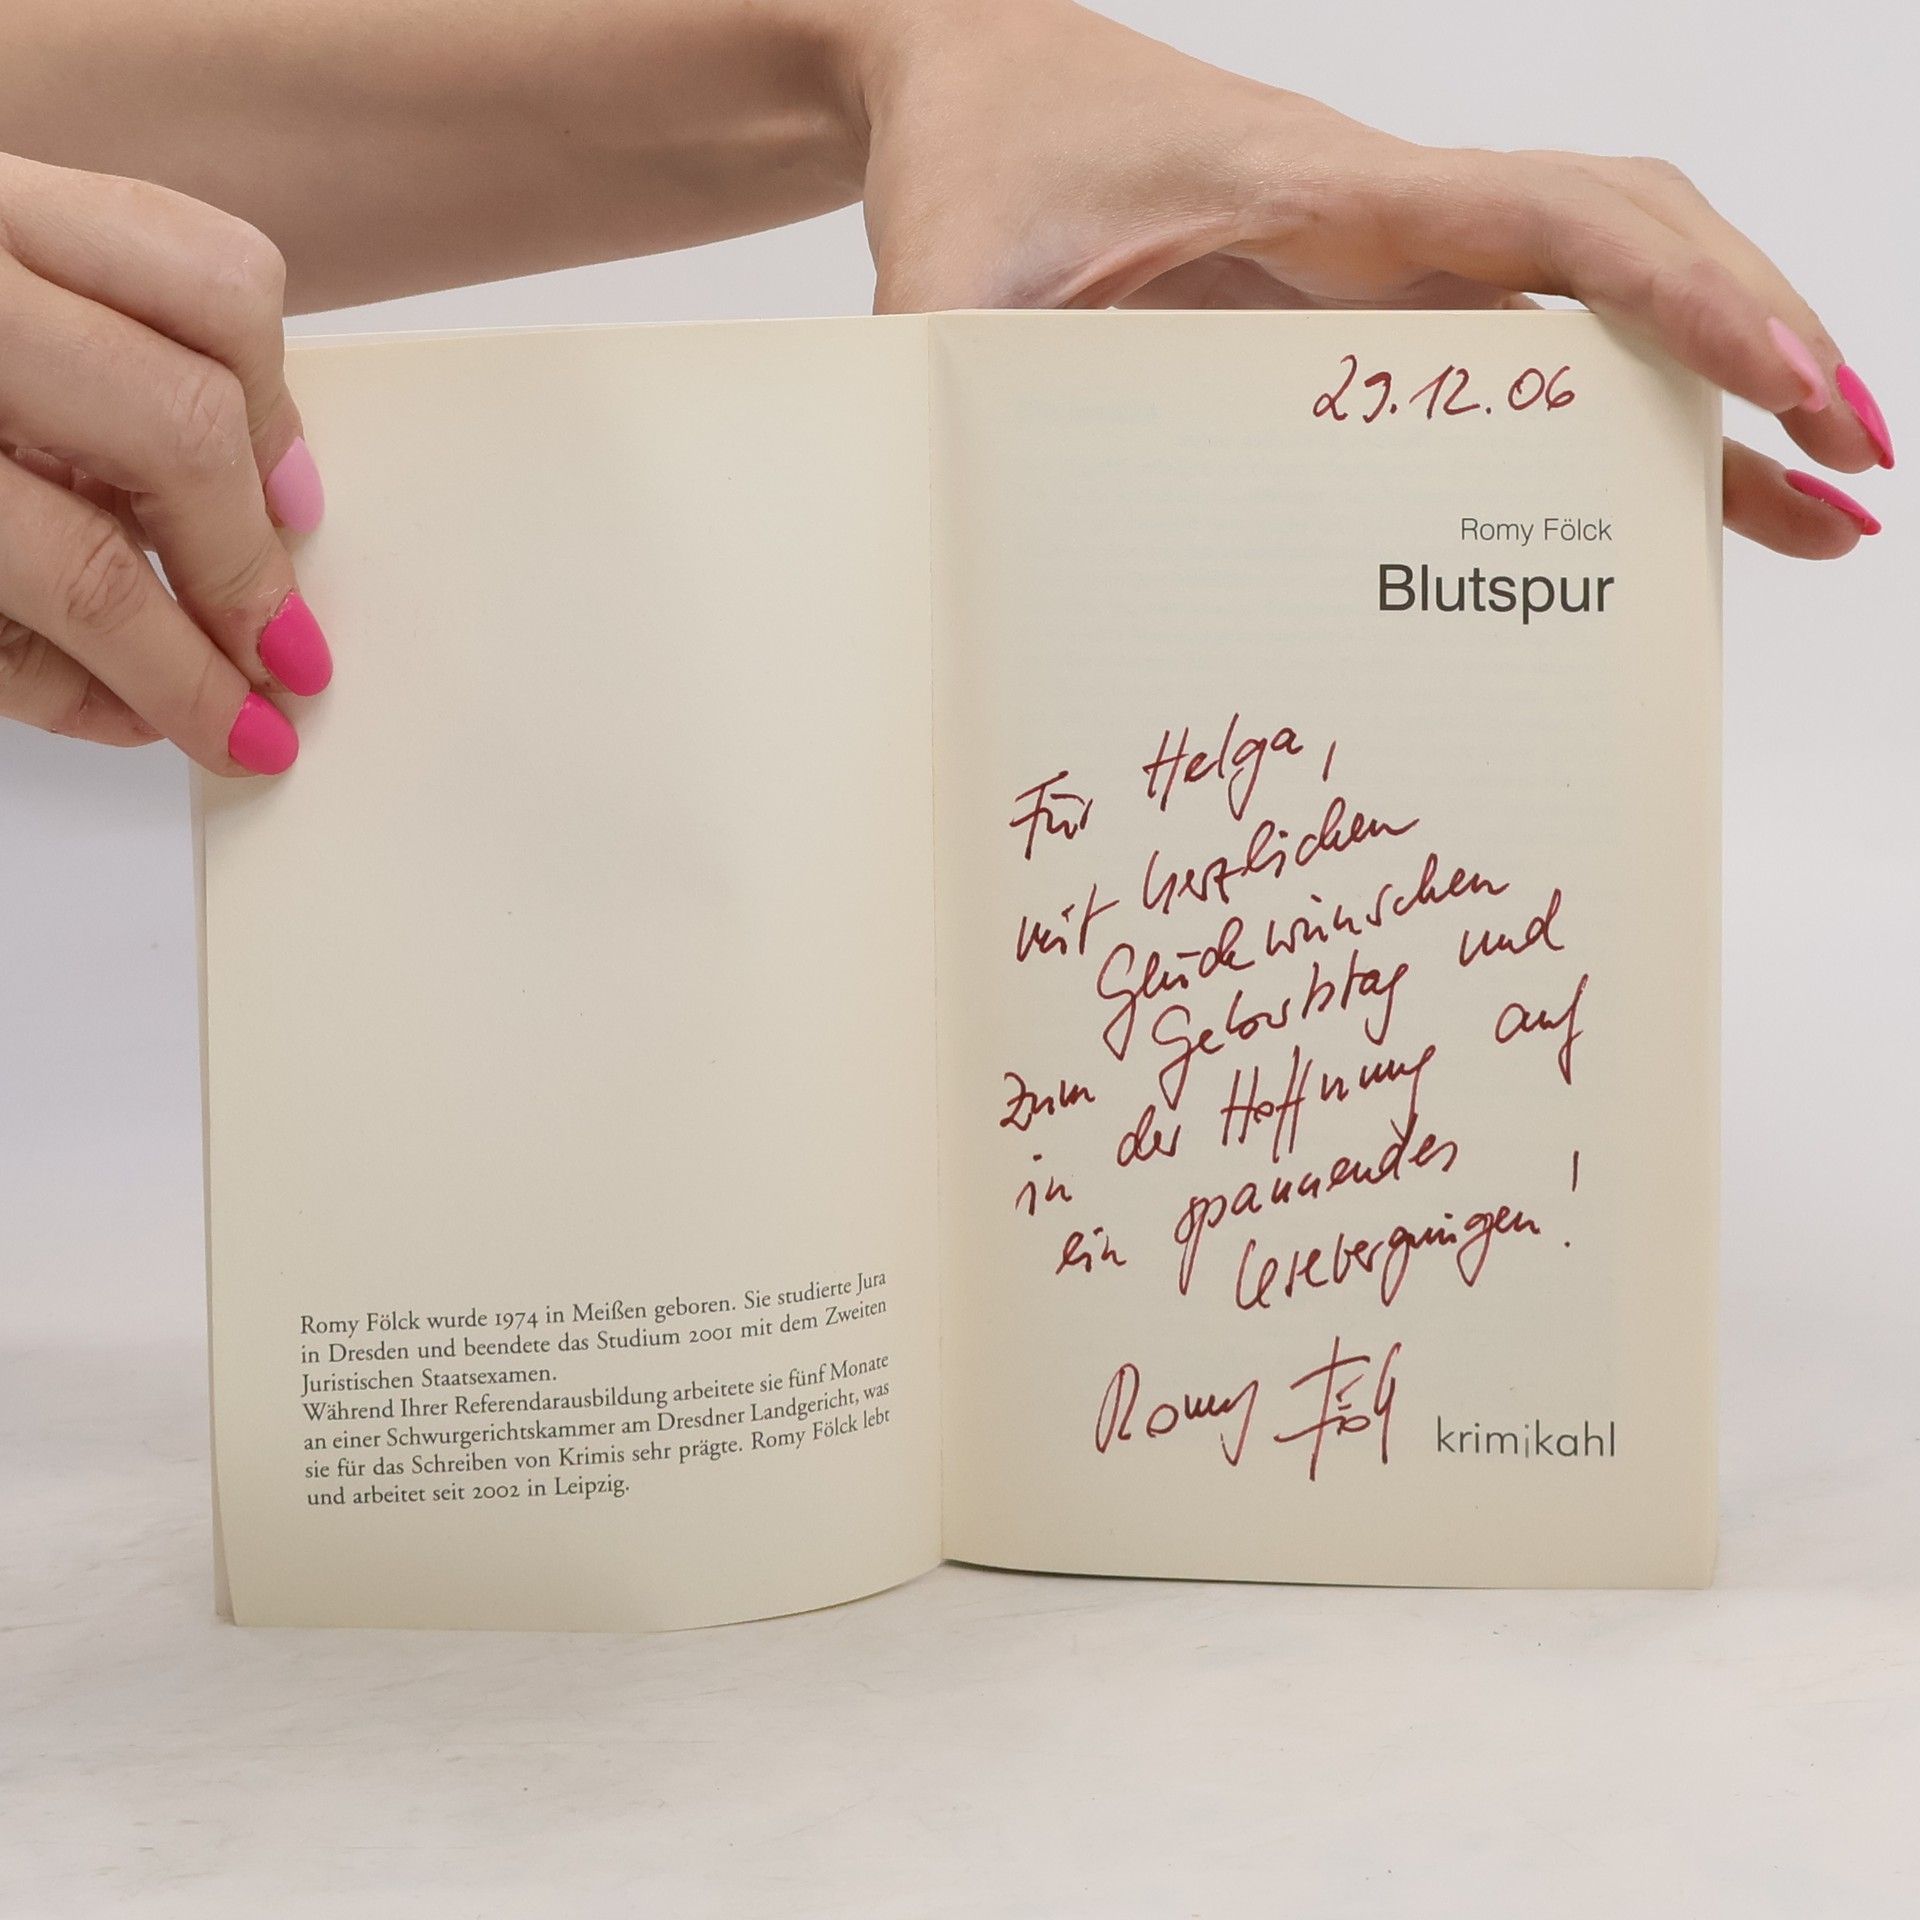 Romy Fölck wurde 1974 in Meißen geboren. Sie studierte Jura
in Dresden und beendete das Studium 2001 mit dem Zweiten
Juristischen Staatsexamen.
Während Ihrer Referendarausbildung arbeitete sie fünf Monate
an einer Schwurgerichtskammer am Dresdner Landgericht, was
sie für das Schreiben von Krimis sehr prägte. Romy Fölck lebt
und arbeitet seit 2002 in Leipzig.
29.12.06
Romy Fölck
Blutspur
Für Helga,
mit herzlichen
Glückwünschen
zum Geburtstag und
in der Hoffnung auf
ein spannendes
Lesevergnügen!
Romy Fölck
krimikahl